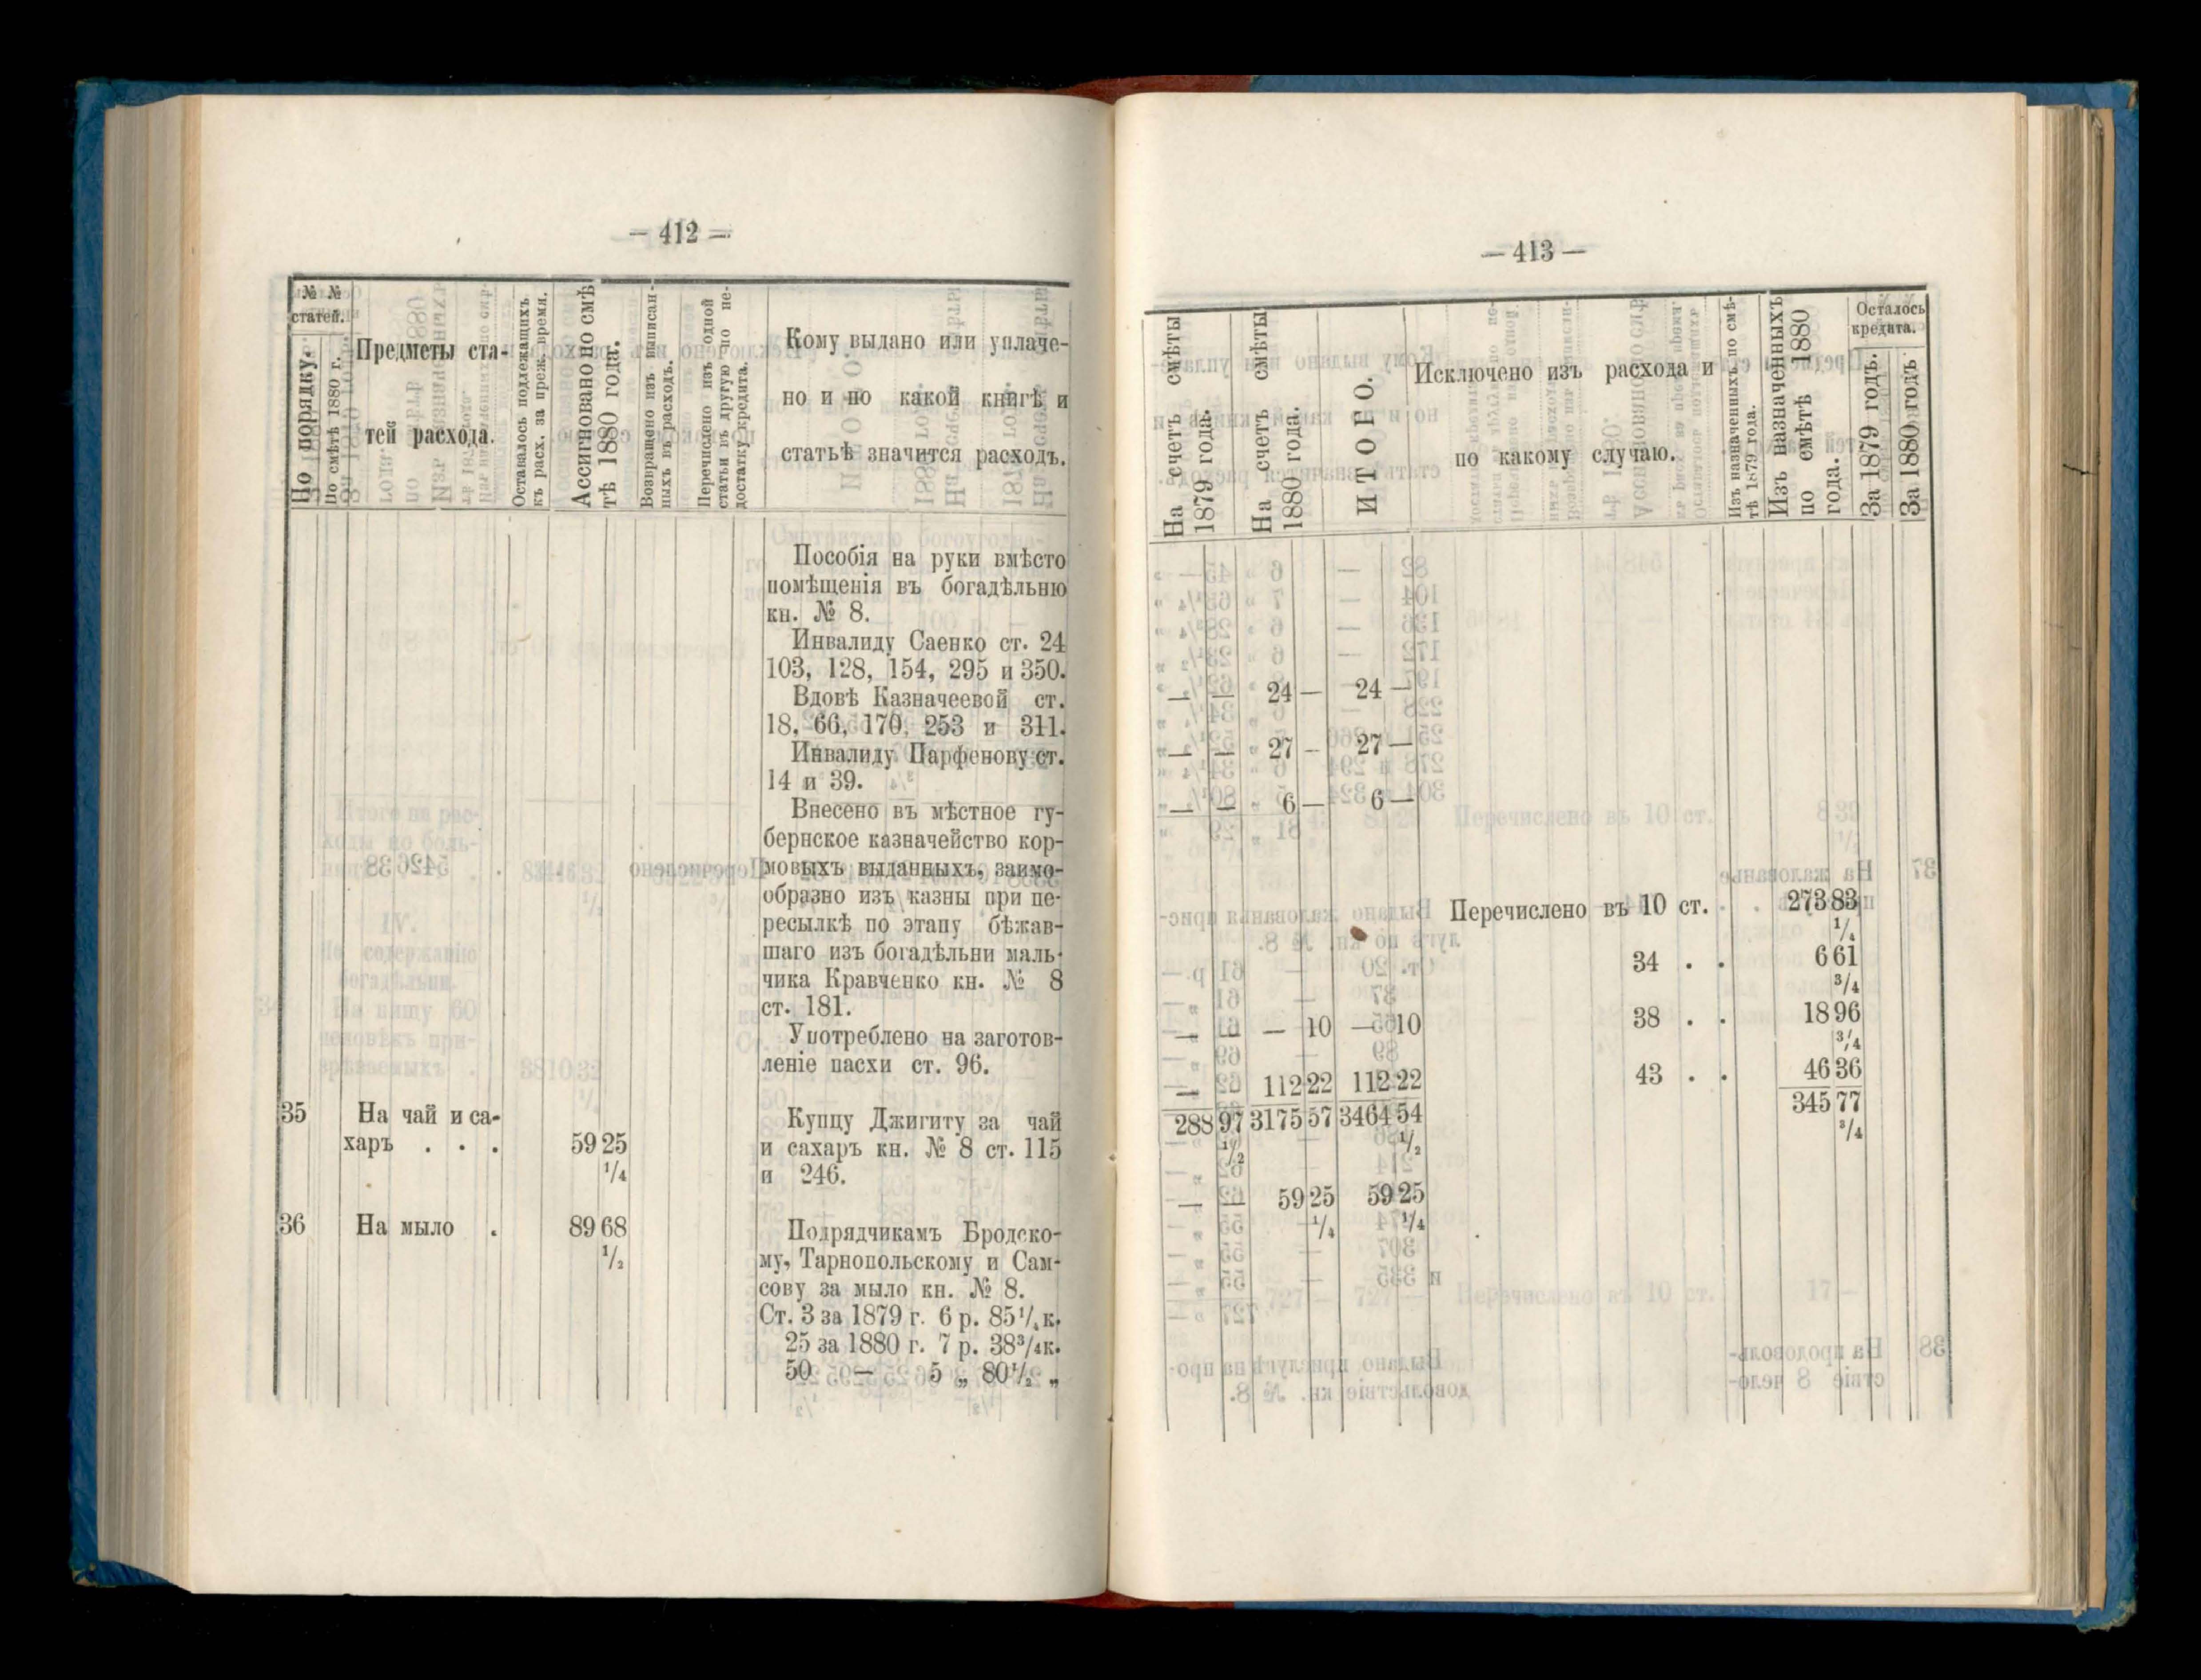 — 412 —
№ №
статей.
По порядку.
По смѣтѣ 1880 г.
Предметы ста-
тей расхода.
Оставалось подлежащихъ
къ расх. за преж. время.
Ассигновано по смѣ-
тѣ 1880 года.
Возвращено изъ выписан-
ныхъ въ расходъ.
Перечислено изъ одной
статьи въ другую по не-
достатку кредита.
Кому выдано или уплаче-
но и по какой книгѣ и
статьѣ значится расходъ.
Пособія на руки вмѣсто
помѣщенія въ богадѣльню
кн. № 8.
Инвалиду Саенко ст. 24
103, 128, 154, 295 и 350.
Вдовѣ Казначеевой ст.
18, 66, 170, 253 и 311.
Инвалиду Парфенову ст.
14 и 39.
Внесено въ мѣстное гу-
бернское казначейство кор-
мовыхъ выданныхъ, заимо-
образно изъ казны при пе-
ресылкѣ по этапу бѣжав-
шаго изъ богадѣльни маль-
чика Кравченко кн. № 8
ст. 181.
Употреблено на заготов-
леніе пасхи ст. 96.
35 На чай и са-
харъ . . . 59 25
1/4
Купцу Джигиту за чай
и сахаръ кн. № 8 ст. 115
и 246.
36 На мыло . 89 68
1/2
Подрядчикамъ Бродско-
му, Тарнопольскому и Сам-
сову за мыло кн. № 8.
Ст. 3 за 1879 г. 6 р. 85 1/4 к.
25 за 1880 г. 7 р. 38 3/4 к.
50 — 5 „ 80 1/2 „
— 413 —
На счетъ смѣты
1879 года.
На счетъ смѣты
1880 года.
ИТОГО.
Исключено изъ расхода и
по какому случаю.
Изъ назначенныхъ по смѣ-
тѣ 1879 года.
Изъ назначенныхъ
по смѣтѣ 1880
года.
Осталось
кредита.
За 1879 годъ.
За 1880 годъ
— — 24 — 24 —
— — 27 — 27 —
— — 6 — 6 —
— — — 10 — 10
— — 112 22 112 22
288 97 3175 57 3464 54
1/2 1/2
— — 59 25 59 25
1/4 1/4
Перечислено въ 10 ст. . 273 83
1/4
34 . . 6 61
3/4
38 . . 18 96
3/4
43 . . 46 36
345 77
3/4